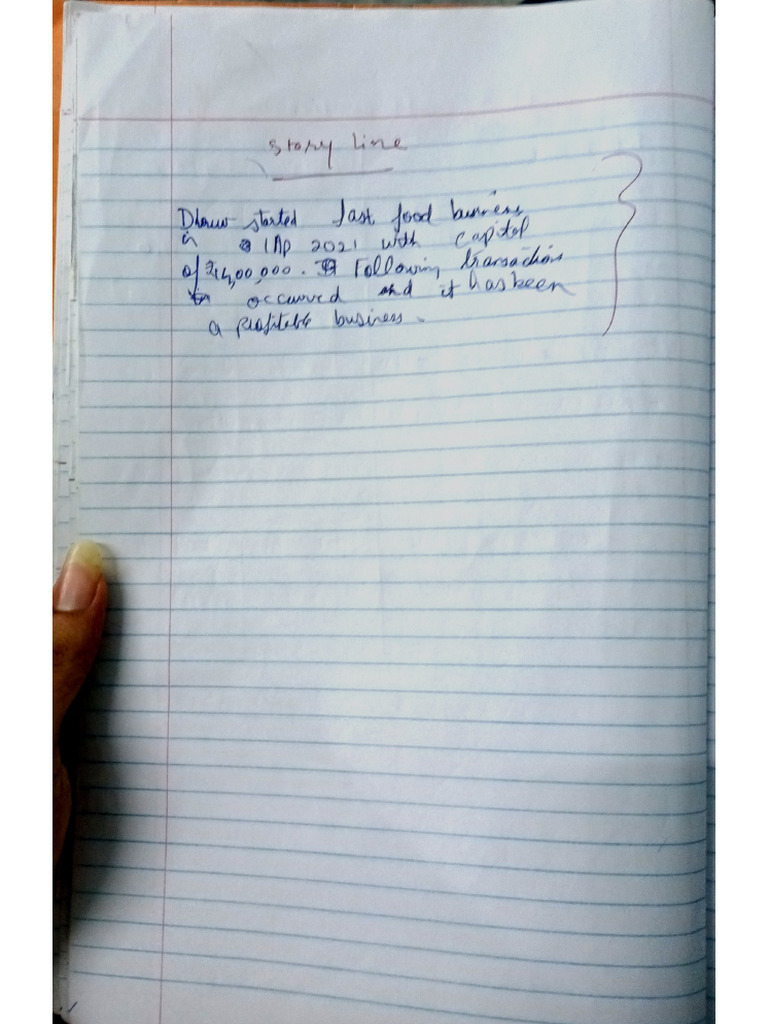 Story line
Dhruv started fast food business
in 1 Ap 2021 with capital
of ₹14,00,000. Following transactions
occurred and it has been
a profitable business.